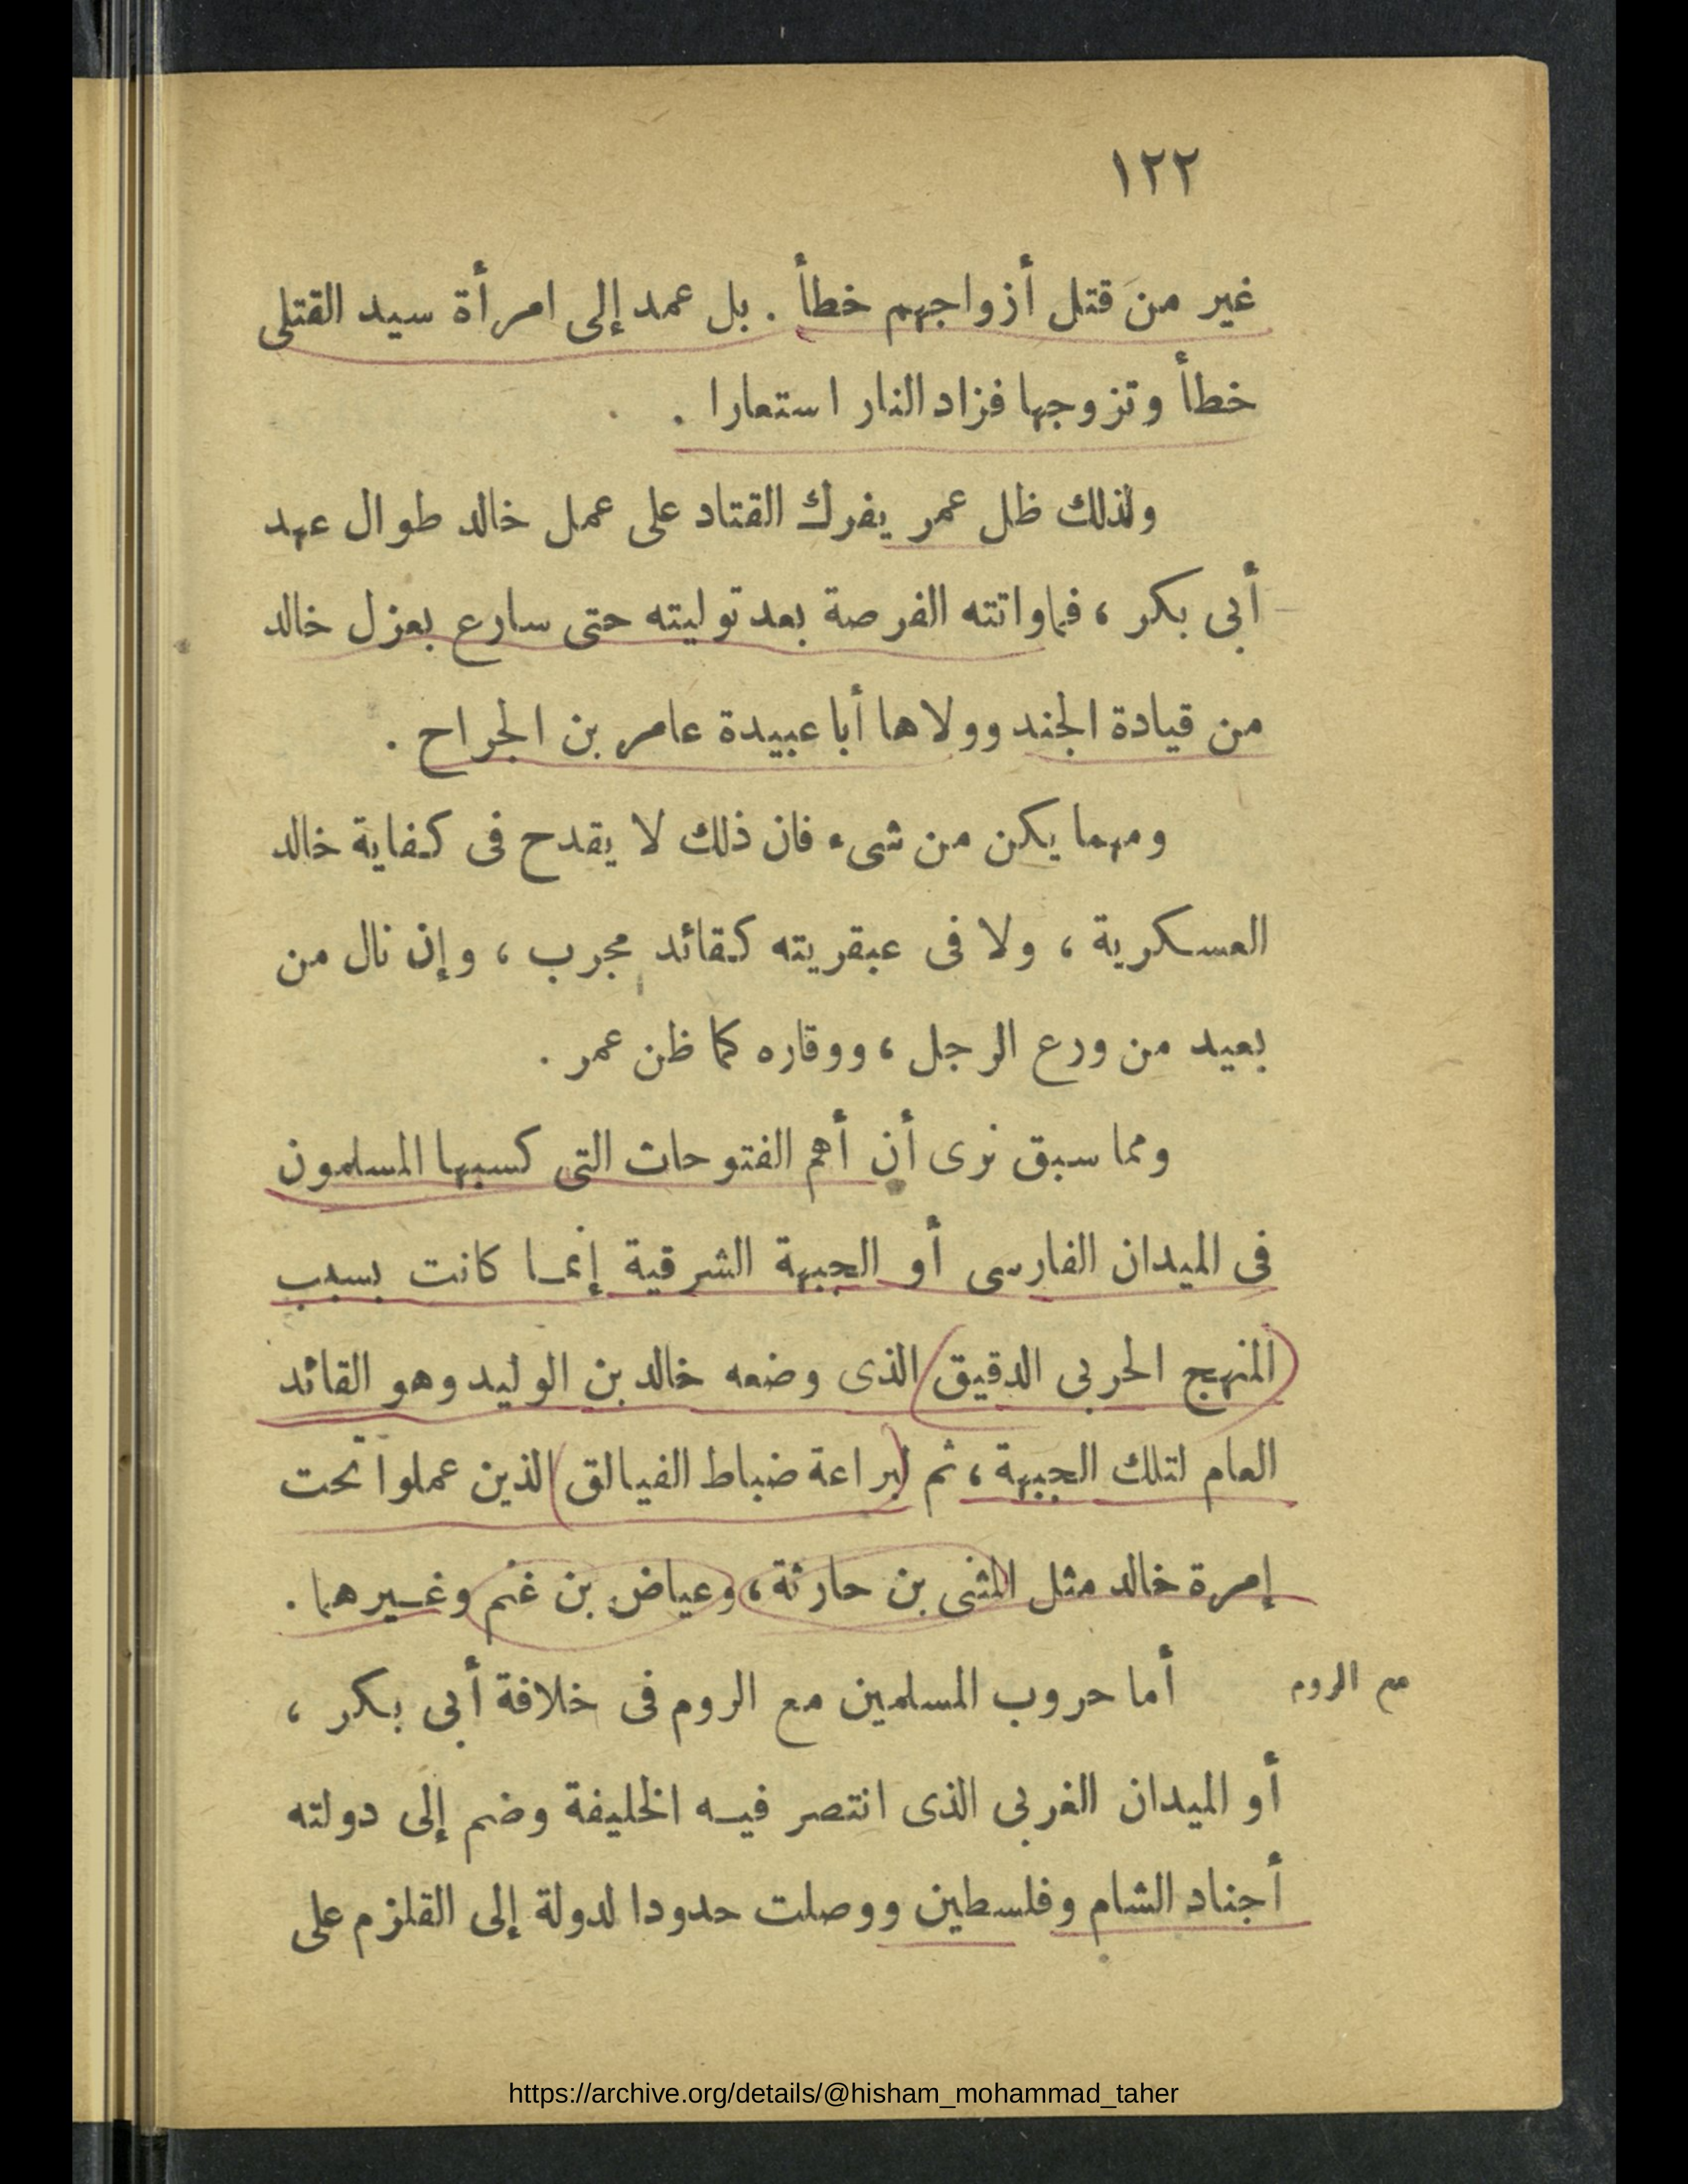 ١٢٢
غير من قتل أزواجهم خطأ . بل عمد إلى امرأة سيد القتلى
خطأ وتزوجها فزاد النار استعارا .
ولذلك ظل عمر يفرك القتاد على عمل خالد طوال عهد
أبى بكر ، فما واتته الفرصة بعد توليته حتى سارع بعزل خالد
من قيادة الجند وولاها أبا عبيدة عامر بن الجراح .
ومهما يكن من شىء فان ذلك لا يقدح فى كفاية خالد
العسكرية ، ولا فى عبقريته كقائد مجرب ، وإن نال من
بعيد من ورع الرجل ، ووقاره كما ظن عمر .
ومما سبق نرى أن أهم الفتوحات التى كسبها المسلمون
فى الميدان الفارسى أو الجبهة الشرقية إنما كانت بسبب
المنهج الحربى الدقيق الذى وضعه خالد بن الوليد وهو القائد
العام لتلك الجبهة ، ثم لبراعة ضباط الفيالق الذين عملوا تحت
إمرة خالد مثل المثنى بن حارثة ، وعياض بن غنم وغيرهما .
مع الروم
أما حروب المسلمين مع الروم فى خلافة أبى بكر ،
أو الميدان الغربى الذى انتصر فيه الخليفة وضم إلى دولته
أجناد الشام وفلسطين ووصلت حدودا لدولة إلى القلزم على
https://archive.org/details/@hisham_mohammad_taher